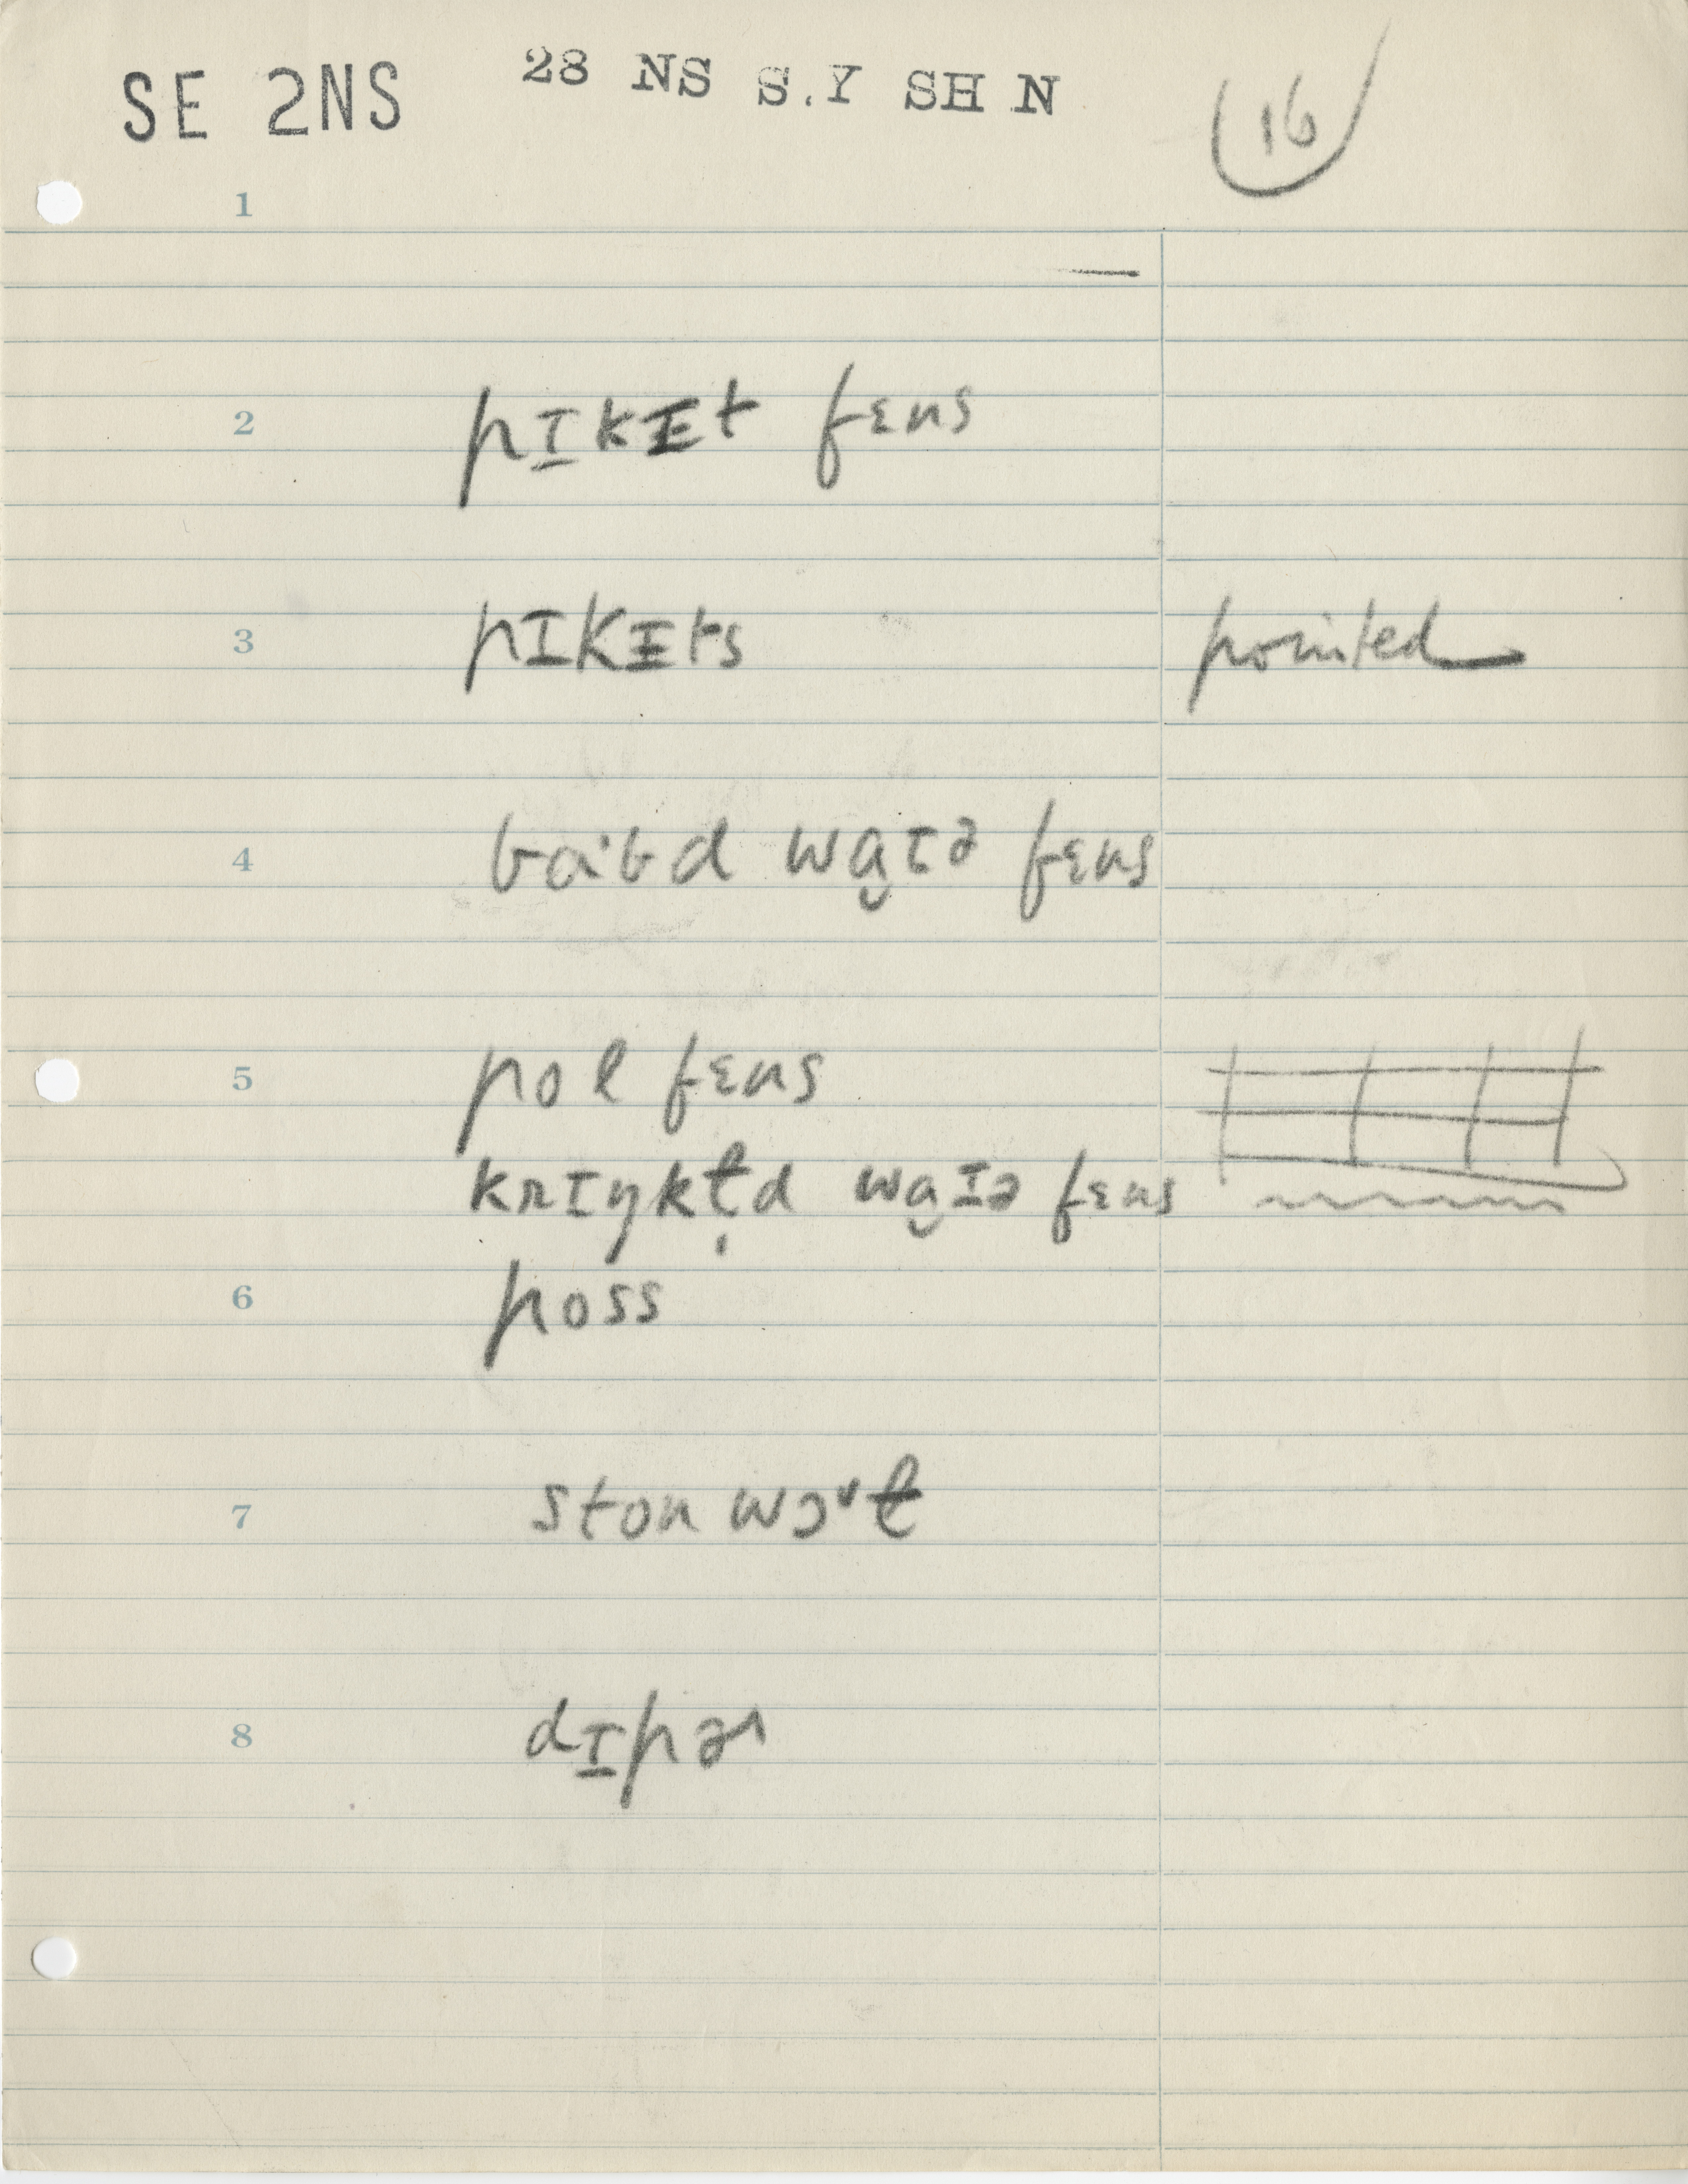 SE 2NS 28 NS S.Y SH N 16
1
2 pɪ̠kɪt fɛns
3 pɪkɪts pointed
4 baˑbd wa̯ɪə fɛns
5 pol fɛns
krɪŋkl̩d wa̯ɪə fɛns
6 poss
7 ston wɔˑɫ
8 dɪ̠pər